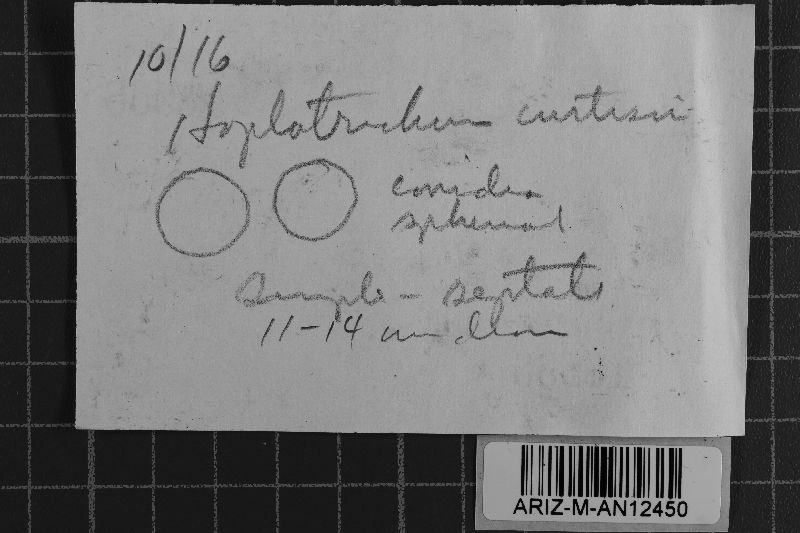 10/16
Haplotrichum curtisii
conidia
spherical
Simple - septate
11-14 um diam
ARIZ-M-AN12450